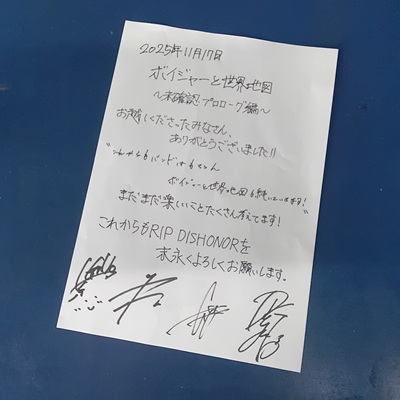 2025年11月17日
ボイジャーと世界地図
～未確認プロローグ編～
お越しくださったみなさん、
ありがとうございました!!
これからもバンドはもちろん
ボイジャーと世界地図も続いていきます!
まだまだ楽しいことたくさん考えてます!
これからもRIP DISHONORを
末永くよろしくお願いします。